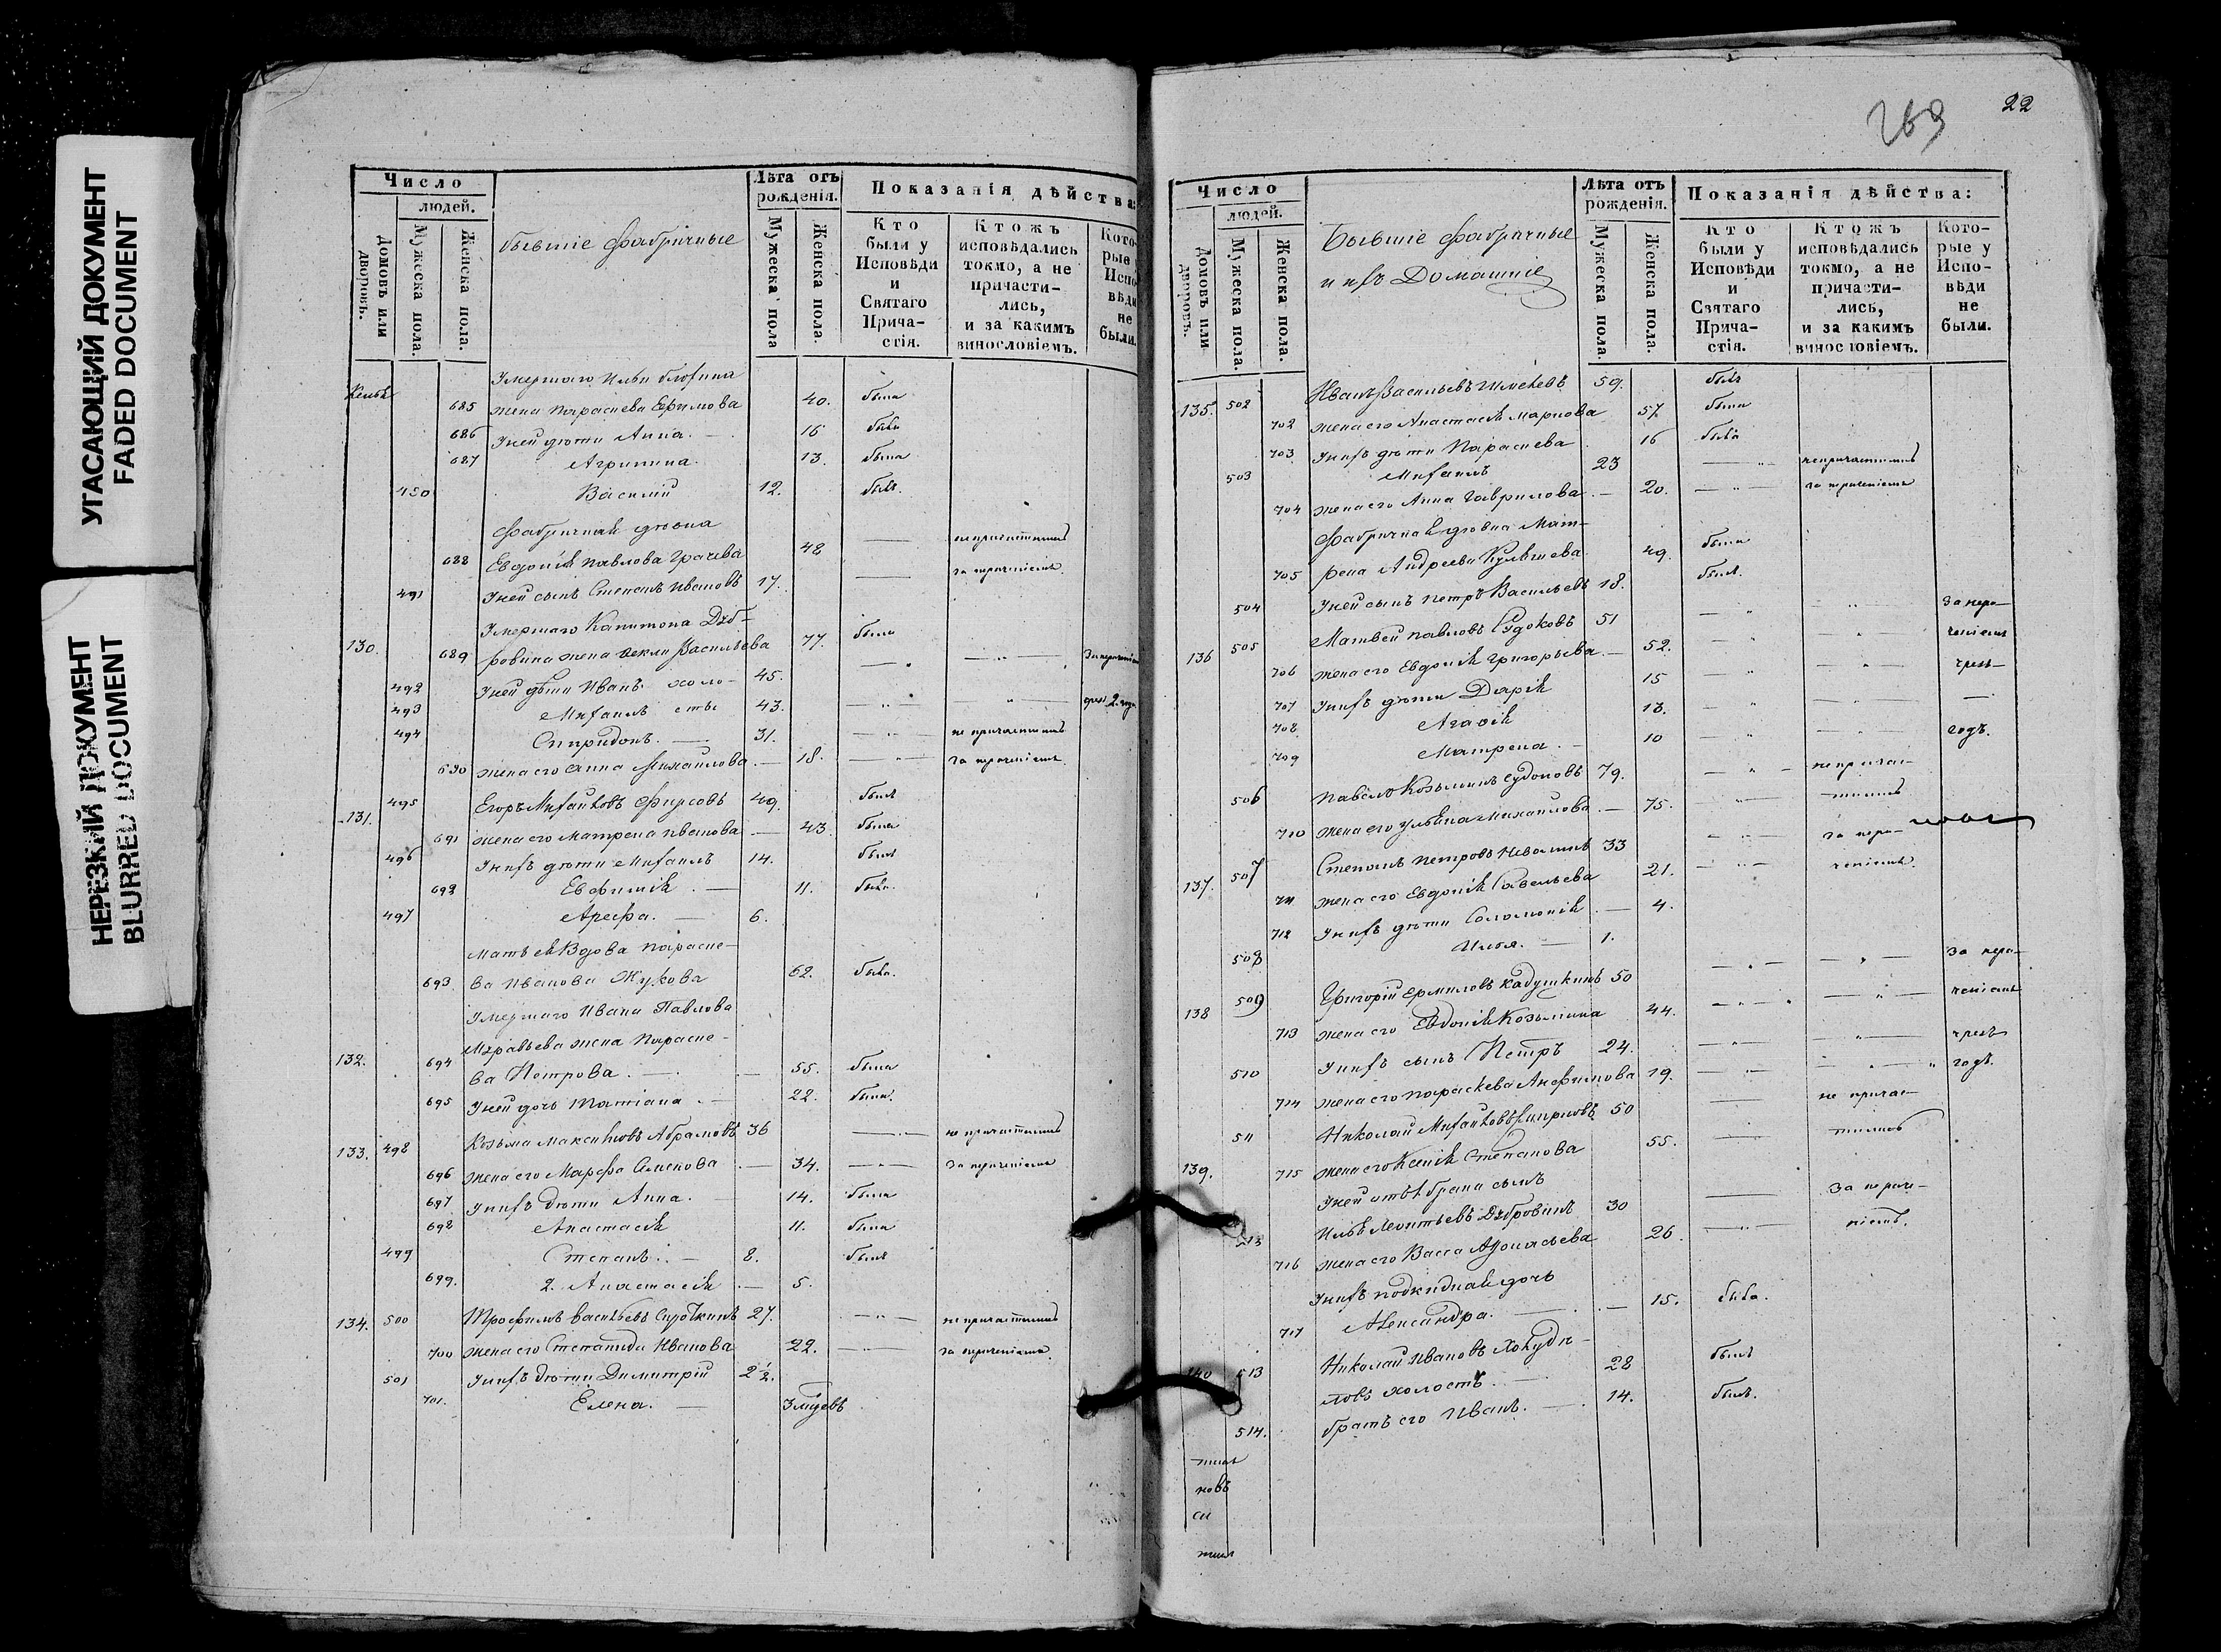 УГАСАЮЩИЙ ДОКУМЕНТ
FADED DOCUMENT
НЕРЕЗКИЙ ДОКУМЕНТ
BLURRED DOCUMENT
Число
людей.
Домовъ или дворовъ.
Мужеска пола.
Женска пола.
бывшіе фабричные
Лѣта отъ рожденія.
Мужеска пола
Женска пола.
Показанія дѣйства:
Кто были у Исповѣди и Святаго Причастія.
Ктожъ исповѣдались токмо, а не причастились, и за какимъ винословіемъ.
Которые Испо-вѣди не были.
Умершаго Ильи
685 жена Параскева Ефимова 40. была
686 У ней дѣти Анна. 16 была
687 Агрипина. 13. была
490 Василій 12. былъ.
Фабричная дѣвка
688 Евдокія Павлова Грачева 48 не причастились
491 У ней сынъ Степанъ Ивановъ 17. за нераченіемъ.
Умершаго Капитона Дуб-
130. 689 ровина жена Векла Васильева 77. была
492 У ней дѣти Иванъ холо- 45. За нераченіем
493 Михаилъ сты 43. чрез 2. года
494 Спиридонъ. 31. не причастились
690 жена его Анна Михаилова 18. за нераченіемъ.
131. 495 Егоръ Михайловъ Фирсовъ 49. былъ
691 жена его Матрена Иванова 43. была
496 У нихъ дѣти Михаилъ 14. былъ
692 Евфимія 11. была.
497 Арефа. 6.
Мать ея Вдова Параске-
693 ва Иванова Жукова 62. была.
Умершаго Ивана Павлова
132. Муравьева жена Параске-
694 ва Петрова. 55. была
695 У ней дочь Татіана 22. была.
133. 498 Козьма Максимовъ Абрамовъ 36 не причастились
696 жена его Марфа Семенова 34. за нераченіемъ
697 У нихъ дѣти Анна. 14. была
698 Анастасія 11. была
499 Степанъ. 8. былъ
699. 2. Анастасія 5.
134. 500 Трофимъ Васильевъ Сироткинъ 27. не причастились
700 жена его Степанида Иванова 22. за нераченіемъ.
501 У нихъ дѣти Димитрій 2½.
701. Елена. 3 мѣсевъ
269
22
Число
людей.
Домовъ или дворовъ.
Мужеска пола.
Женска пола.
Бывшіе фабричные
и ихъ Домашніе
Лѣта отъ рожденія.
Мужеска пола.
Женска пола.
Показанія дѣйства:
Кто были у Исповѣди и Святаго Причастія.
Ктожъ исповѣдались токмо, а не причастились, и за какимъ винословіемъ.
Которые у Исповѣди не были.
135. 502 Иванъ Васильевъ 59. былъ
702 жена его Анастасія Маркова 57 была
703 У нихъ дѣти Параскева 16 была
503 Михаилъ 23 не причастились
704 жена его Анна Гаврилова 20. за нераченіемъ
Фабричная дѣвка Мат-
705 рена Андреева 49. была
504 У ней сынъ Петръ Васильевъ 18. былъ.
136 505 Матвей Павловъ Судоковъ 51 За нера-
706 жена его Евдокія Григорьева 52. ченіемъ
707 У нихъ дѣти Дарія 15 чрезъ
708 Агафія 13.
709 Матрена. 10 годъ.
506 Павелъ Козьминъ Судоковъ 79. не причас-
710 жена его Ульяна Михаилова 75. тились
137. 507 Степанъ Петровъ 33 за нера-
711 жена его Евдокія Савельева 21. ченіемъ
712 У нихъ дѣти Соломонія 4.
508 Илья. 1.
138 509 Григорій Ермиловъ Кадушкинъ 50 За нера-
713 жена его Евдокія Козьмина 44. ченіемъ
510 У нихъ сынъ Петръ 24. чрезъ
714 жена его Параскева Анфимова 19. годъ.
139. 511 Николай Михайловъ Смирновъ 50 не причас-
715 жена его Ксенія Степанова 55. тились
У ней отъ I брака сынъ
Илья Леонтьевъ Дубровинъ 30 За нраче-
716 жена его Васса 26. ніемъ.
У нихъ подкидная дочь
717 Александра. 15. была.
140 513 Николай Ивановъ
ловъ холостъ. 28 былъ
514. братъ его Иванъ. 14. былъ.